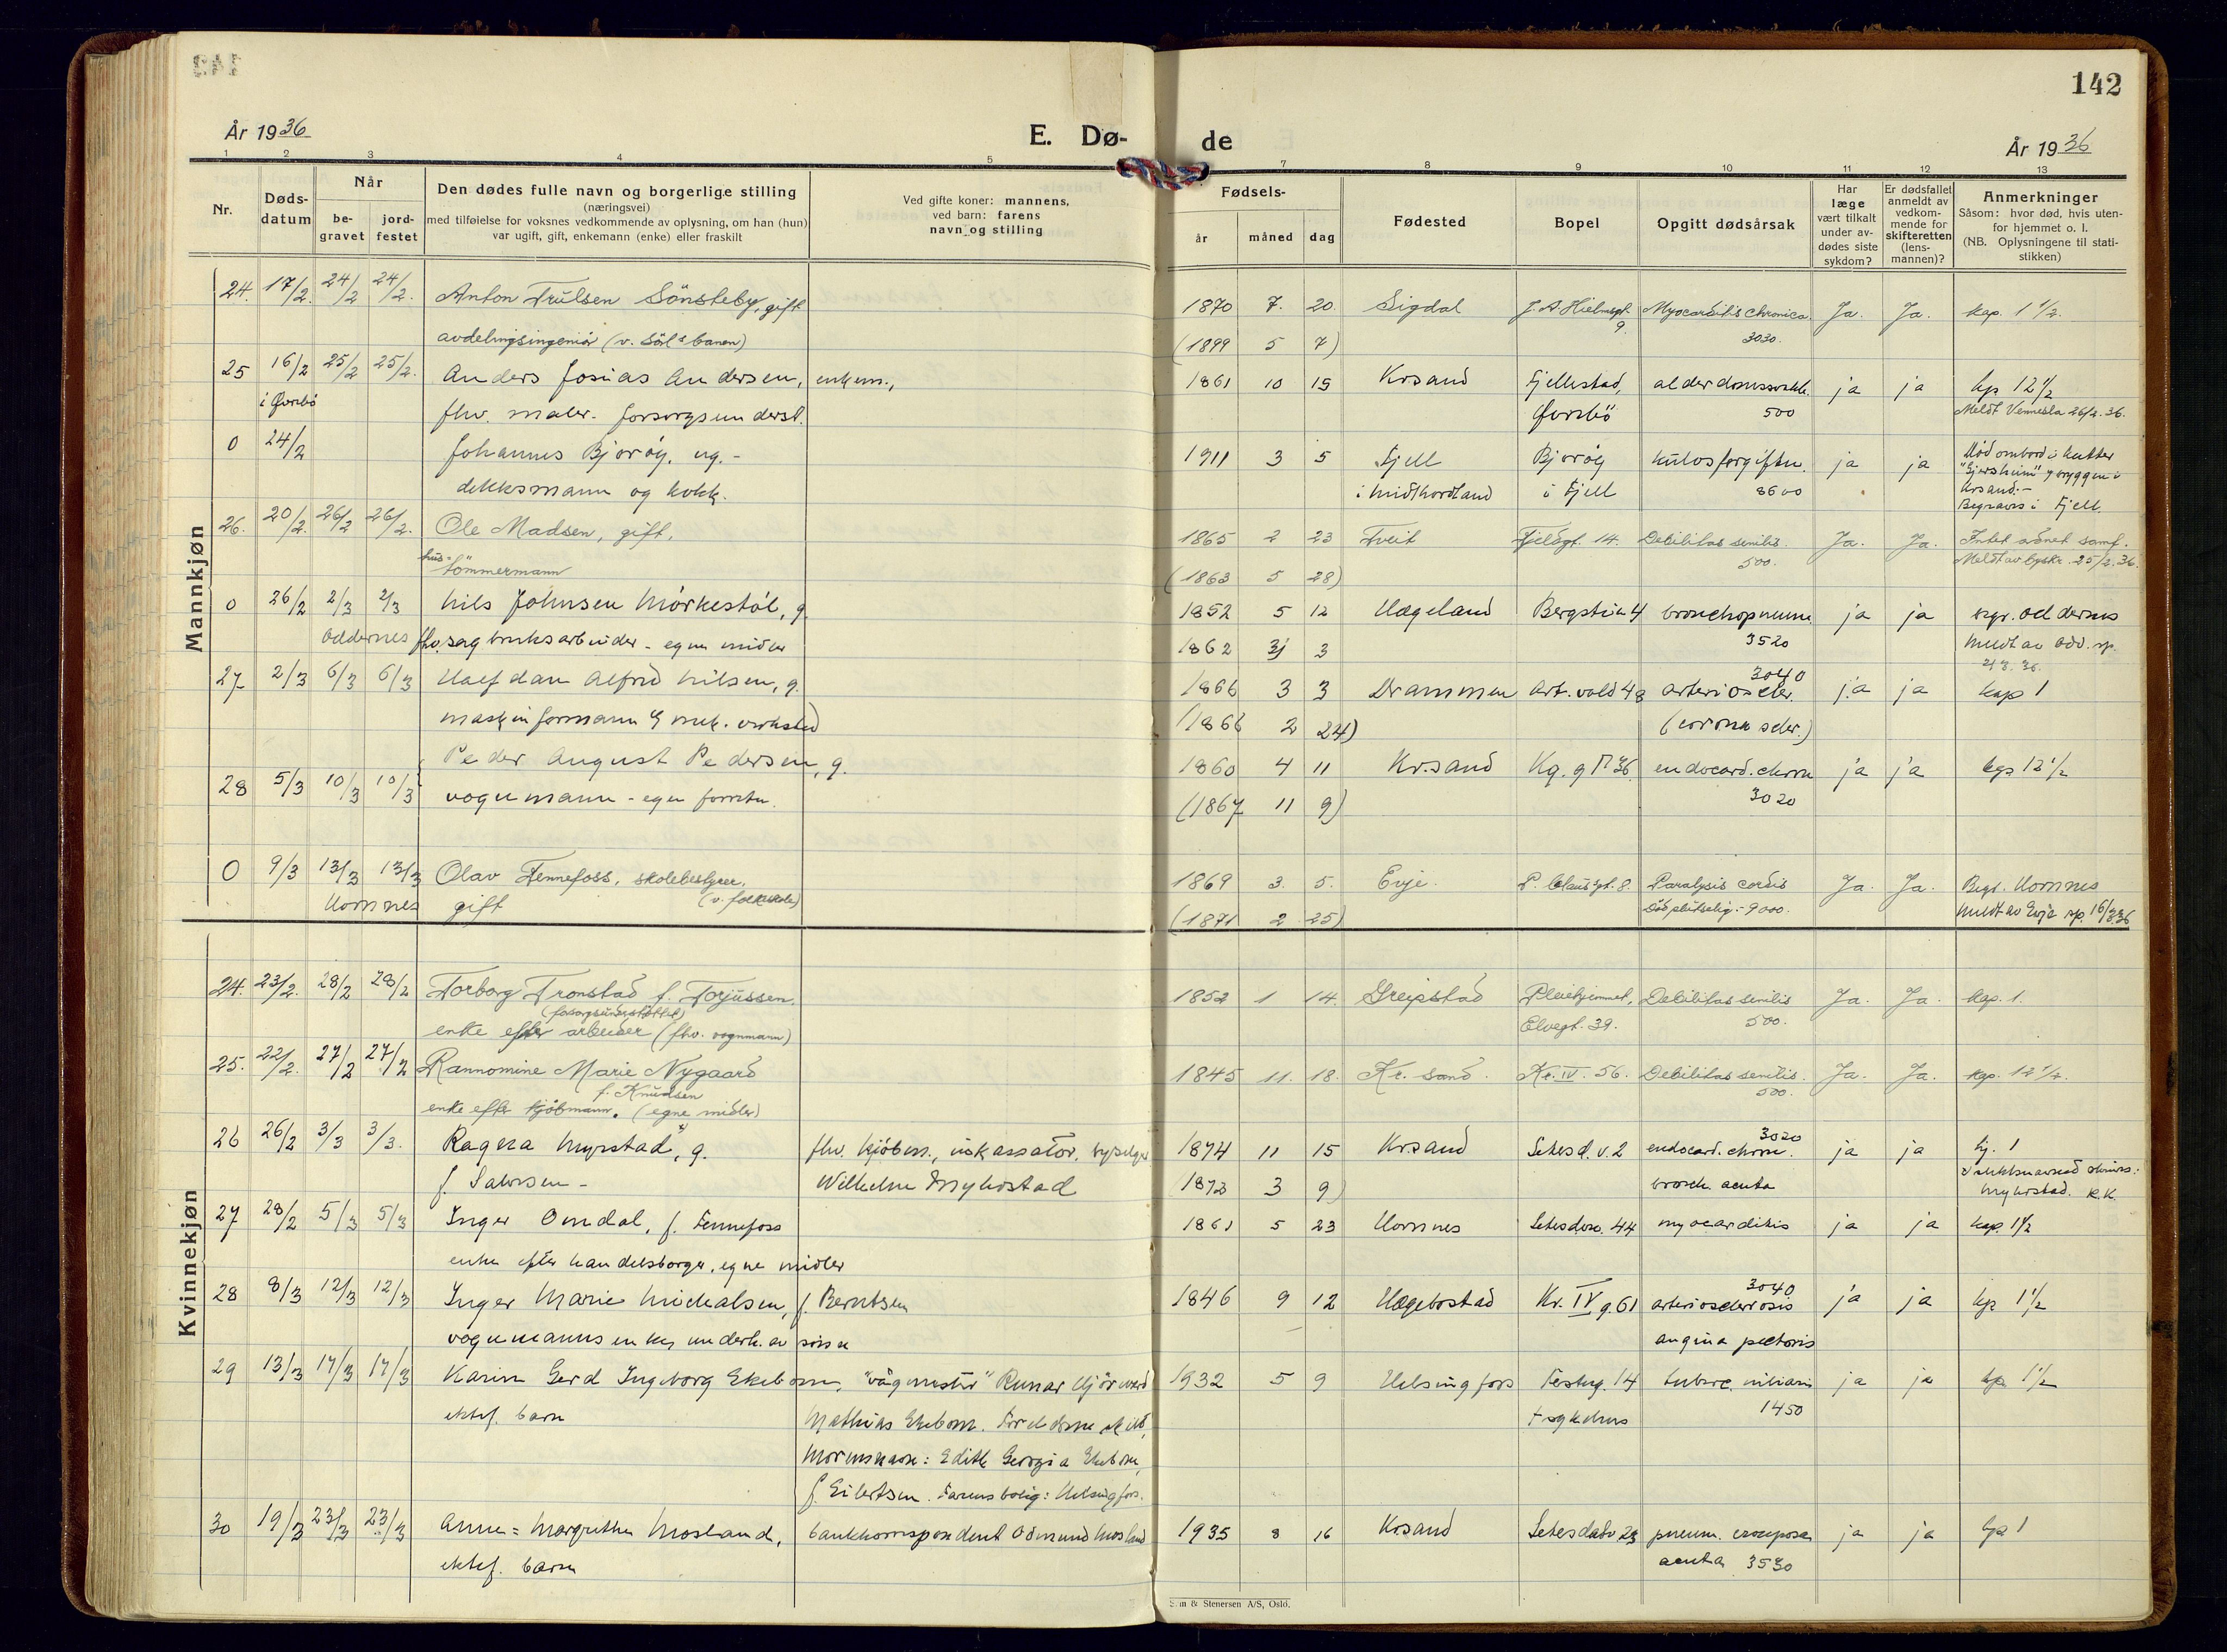 142
År 1936
E. Dø- de
År 1936
1 2 3 4 5 7 8 9 10 11 12 13
Nr.
Døds-
datum
Når
be-
gravet
jord-
festet
Den dødes fulle navn og borgerlige stilling
(næringsvei)
med tilføielse for voksnes vedkommende av oplysning, om han (hun)
var ugift, gift, enkemann (enke) eller fraskilt
Ved gifte koner: mannens,
ved barn: farens
navn og stilling
Fødsels-
år måned dag
Fødested
Bopel
Opgitt dødsårsak
Har
læge
vært tilkalt
under av-
dødes siste
sykdom?
Er dødsfallet
anmeldt av
vedkom-
mende for
skifteretten
(lens-
mannen)?
Anmerkninger
Såsom: hvor død, hvis uten-
for hjemmet o. l.
(NB. Oplysningene til stati-
stikken)
Mannkjøn
24. 17/2. 24/2 24/2. Anton Trulsen Sönsteby, gift 1870 7. 20. Sigdal Myocarditis chronica. Ja. Ja. kap. 1 1/2.
avdelingsingeniör (v. Sörl.s banen) (1899 5 7) 9. 3030.
25 16/2 25/2 25/2. Anders Josias Andersen, enkem., 1861 10 15 Krsand Fjellestad, ja ja kp 12 1/2
i Øvrebö fhv. maler. forsorgsunderst. Øvrebö 500 Meldt Vennesla 26/2. 36.
0 24/2 Johannes Bjorøy, ug. - 1911 3 5 Fjell Bjorøy kulosforgiftn. ja ja Död ombord i kutter
dekksmann og kokk. i Midthordland i Fjell 8600 bryggen i
Krsand. -
Begraves i Fjell.
26. 20/2. 26/2 26/2. Ole Madsen, gift. 1865 2 23 Tveit 14. Debilitas senilis. Ja. Ja. Intet åønet samf.
hus-
tömmermann (1863 5 28) 500. Meldt av byskr. 25/2. 36.
0 26/2 2/3 2/3 Nils Johnsen Mörkestöl, g. 1852 5 12 Hægeland Bergstien 4 bronchopneum. ja ja begr. Oddernes
Oddernes fhv. sagbruksarbeider - egne midler 1862 3 3 3520 Meldt av Odd. sp.
27 2/3 6/3 6/3 Halfdan Alfred Nilsen, g. 1866 3 3 Drammen Art. vold 48 3040 arterioscler. ja ja kap 1
maskinformann mek. verksted (1866 2 24) (corona scler.)
Peder August Pedersen, g. 1860 4 11 Kr.sand 36. endocard. chron ja ja kap 12 1/2
28 5/3 10/3 10/3 vognmann - egen forretn. (1867 11 9) 3020
0 9/3 13/3 13/3 Olav Fennefoss, skolebestyrer. 1869 3. 5. Evje. P. Claus. gt. 8. Paralysis cordis Ja. Ja. Begr. Hornnes
Hornnes gift (v. folkeskole) (1871 2 25) Död plutselig. - 9000. Meldt av Evje sp. 16/3.36
Kvinnekjøn
24. 23/2. 28/2 28/2 Torborg Tronstad f. Torjussen. 1852 1 14. Greipstad Pleiehjemmet, Debilitas senilis Ja. Ja. kap. 1.
(forsorgsunderstöttet)
enke efter arbeider (fhv. vognmann) Elvegt. 39. 500.
25. 22/2. 27/2 27/2 Rannomine Marie Nygaard 1845 11. 18. Kr. sand. Kr. IV. 56. Debilitas senilis. Ja. Ja. kap. 12 1/2.
f. Knudsen
enke efter kjöbmann. (egne midler) 500.
26 26/2 3/3 3/3. Ragna Myrstad, g. fhv. kjöbm., inkassator, 1874 11 15 Krsand Setesd. v. 2 3020 endocard. chron. ja ja kp. 1
f. Salvesen - Wilhelm Myhrstad 1872 3 9) bronch. acuta
Myhrstad. K.K.
27 28/2 5/3 5/3 Inger Omdal, f. Fennefoss 1861 5 23 Hornnes Setesdsv. 44 myocarditis ja ja kap. 1 1/2
enke efter handelsborger, egne midler
28 8/3 12/3 12/3 Inger Marie Michalsen, f. Berntsen 1846 9 12 Hægebostad Kr. IV g. 61 3040 arteriosclerosis ja ja kp 1 1/2
vognmanns enke, underh. av angina pectoris
29 13/3 17/3 17/3 Karin Gerd Ingeborg Ekebom, "vågmester" Runar Hjörvard 1932 5 9 Helsingfors Festng. 14 tuberc. miliaris ja ja kp. 1 1/2
ektef. barn Mathias Ekebom. Foreldrene skilt, + sykehus 1450
Morens navn: Edith Georgia Ekebom,
f. Eilertsen. Farens bolig: Helsingfors.
30 19/3 23/3 23/3 Anne = Margrethe Mosland, bankkorrespondent Odmund Mosland 1935 8 16 Krsand Setesdalsv 23 pneum. crouposa ja ja kp 1
ektef. barn acuta 3530
& Stenersen A/S, Oslo.